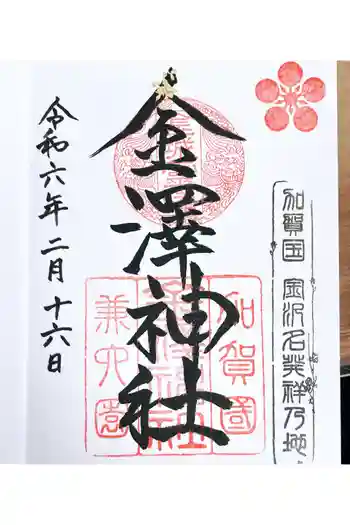 加賀国 金沢名発祥乃地
金澤神社
加賀國
兼六園
令和六年二月十六日